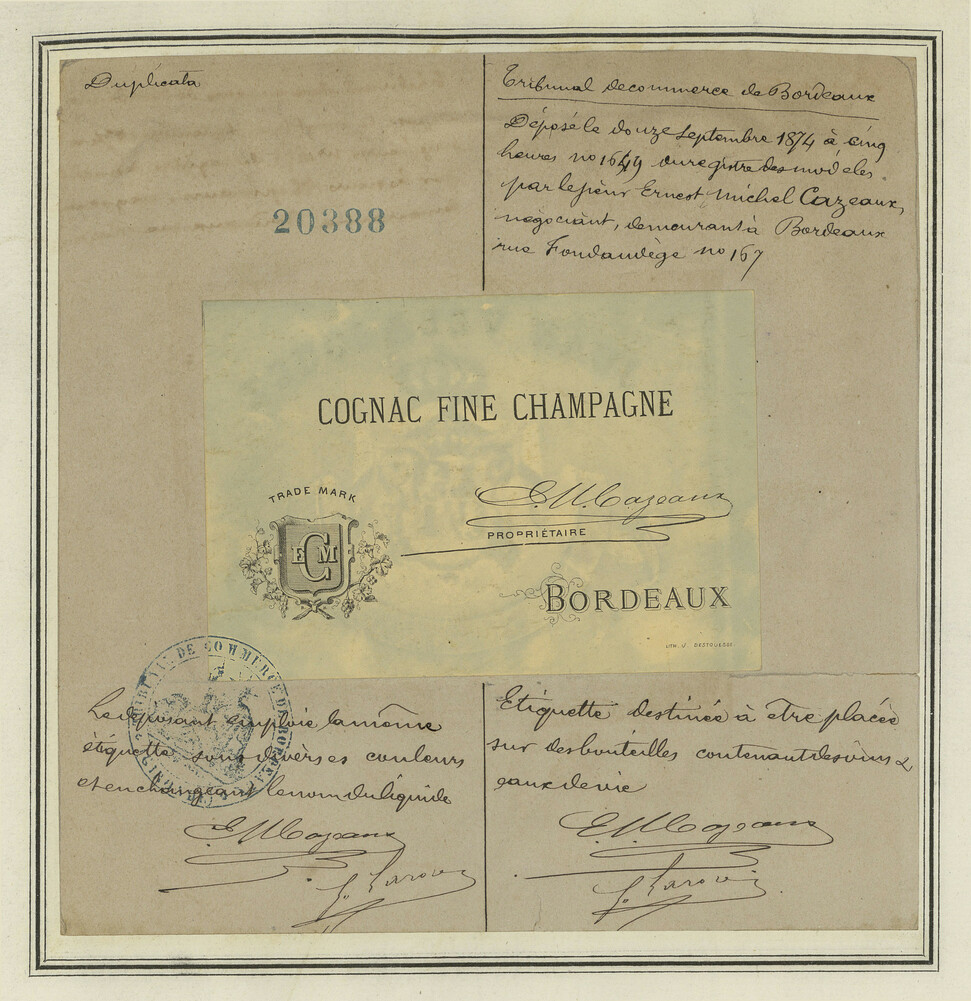 Duplicata
20388
Tribunal de commerce de Bordeaux
Déposé le douze Septembre 1874 à cinq
heures no 1649 du registre des modèles
par le sieur Ernest Michel Cazeaux,
négociant, demeurant à Bordeaux
rue Fondaudège no 167
COGNAC FINE CHAMPAGNE
TRADE MARK
ECM
E. M. Cazeaux
PROPRIÉTAIRE
BORDEAUX
LITH. J. DESTOUESSE
TRIBUNAL DE COMMERCE DE BORDEAUX
Le déposant emploie la même
étiquette sous diverses couleurs
et en changeant le nom du liquide
E. M. Cazeaux
Etiquette destinée à être placée
sur des bouteilles contenant des vins &
eaux de vie
E. M. Cazeaux